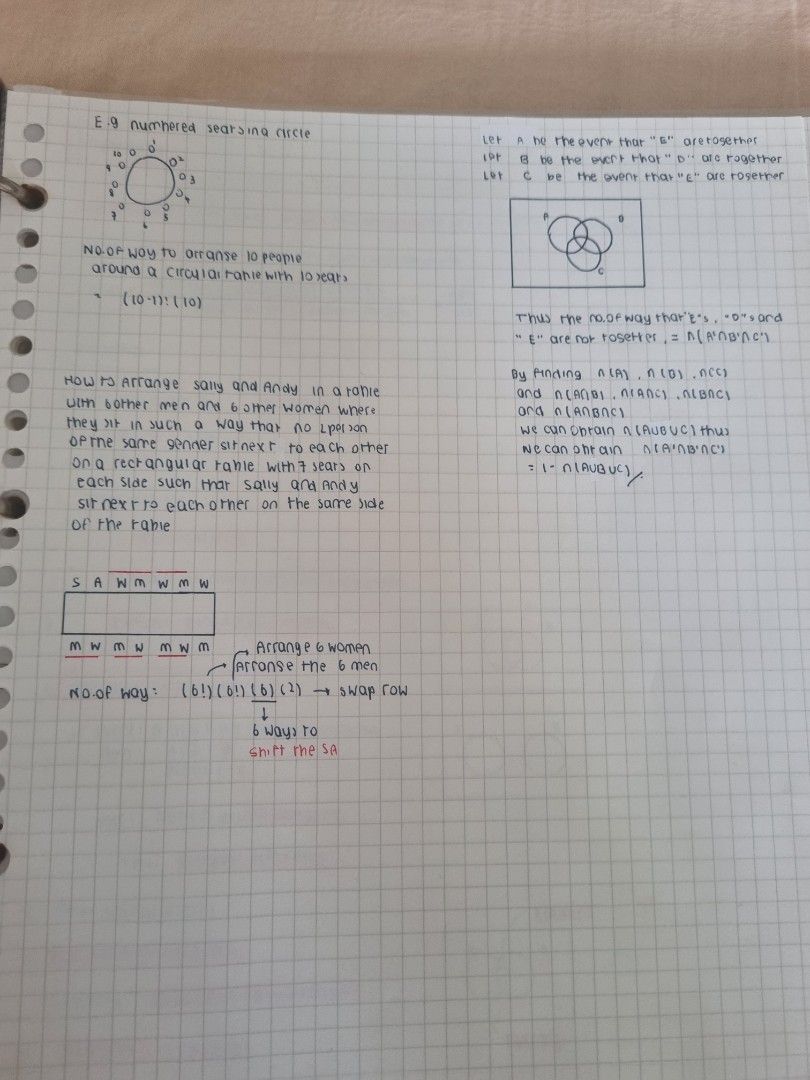 E.g numbered seats in a circle
1
10
2
9
3
8
4
7
5
6
No. of way to arrange 10 people
around a circular table with 10 seats
= (10-1)! (10)
How to Arrange sally and Andy in a table
with 6 other men and 6 other women where
they sit in such a way that no 2 person
of the same gender sit next to each other
on a rectangular table with 7 seats on
each side such that sally and Andy
sit next to each other on the same side
of the table
S A W M W M W
M W M W M W M
Arrange 6 women
Arrange the 6 men
No. of way: (6!) (6!) (6) (2) → swap row
↓
6 ways to
shift the SA
Let A be the event that "E" are together
Let B be the event that "D" are together
Let C be the event that "E" are together
A B
C
Thus the no. of way that "E"s, "D"s and
"E" are not together, = n(A'∩B'∩C')
By finding n(A), n(B), n(C)
and n(A∩B), n(A∩C), n(B∩C)
and n(A∩B∩C)
we can obtain n(A∪B∪C) thus
we can obtain n(A'∩B'∩C')
= 1 - n(A∪B∪C)